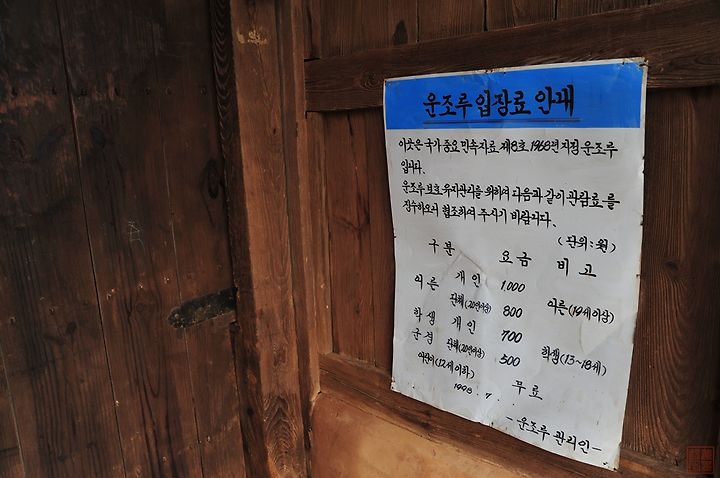 운조루 입장료 안내
이곳은 국가 중요 민속자료 제8호 1968년 지정 운조루
입니다.
운조루 보호 유지관리를 위하여 다음과 같이 관람료를
징수하오니 협조하여 주시기 바랍니다.
(단위:원)
구분 요금 비고
어른 개인 1,000
단체(20인이상) 800 어른(19세이상)
학생 개인 700
군경 단체(20인이상) 500 학생(13~18세)
어린이(12세이하) 무료
1998. 7.
-운조루 관리인-